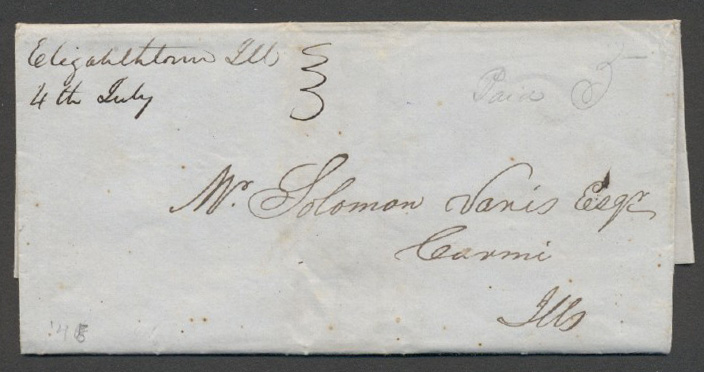 Elizabethtown Ills
4th July
Paid 3
Mr. Solomon Vories Esqr
Carmi
Ills